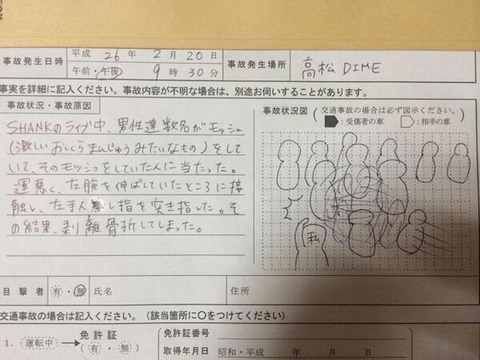 事故発生日時 平成 26 年 2 月 20 日 午前・午後 9 時 30 分 事故発生場所 高松DIME
事実を詳細に記入ください。事故内容が不明な場合は、別途お伺いすることがあります。
事故状況・事故原因
SHANKのライブ中、男性達数名がモッシュ
(激しいおしくらまんじゅうみたいなもの)をして
いて、そのモッシュをしていた人に当たった。
運悪く、左腕を伸ばしていたところに接
触し、左手人差し指を突き指した。そ
の結果、剥離骨折してしまった。
事故状況図 (交通事故の場合は必ず図示ください。
:受傷者の車 :相手の車)
私
目撃者 有・無 氏名 住所
交通事故の場合は記入ください。(該当箇所に〇をつけてください)
1. 運転中 免許証 (有・無) 免許証番号
取得年月日 昭和・平成 年 月 日